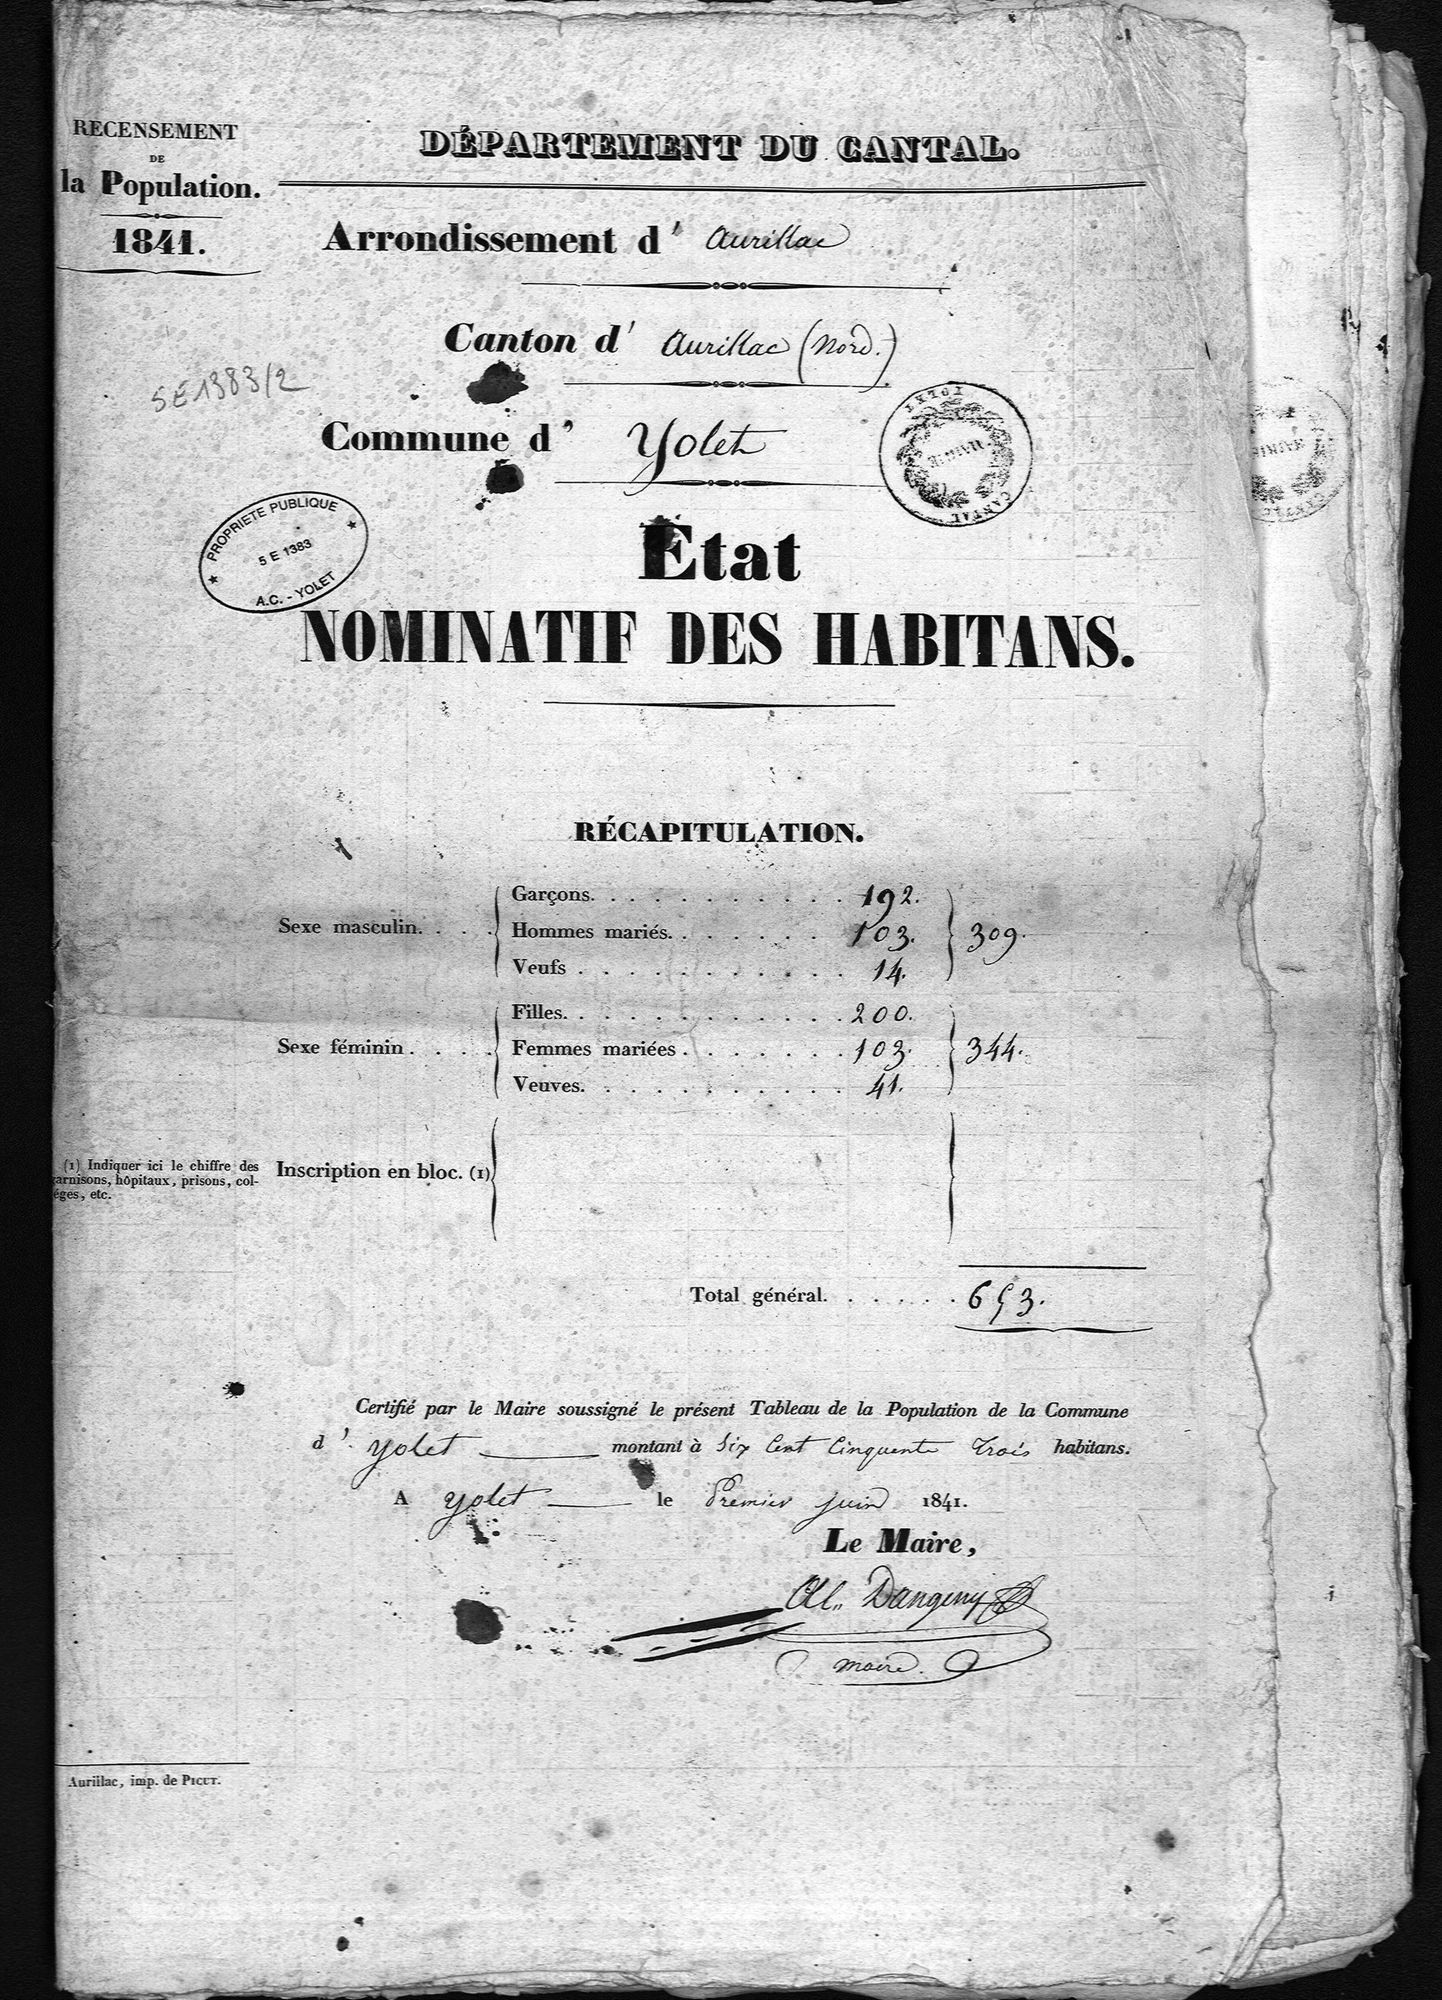 RECENSEMENT
DE
la Population.
1841.
DÉPARTEMENT DU CANTAL.
Arrondissement d' Aurillac
Canton d' Aurillac (Nord.)
5 E 1383/2
Commune d' Yolet
YOLET
MAIRIE
CANTAL
PROPRIETE PUBLIQUE
5 E 1383
A.C. - YOLET
Etat
NOMINATIF DES HABITANS.
RÉCAPITULATION.
Sexe masculin. . . .
Garçons. . . . . . . . . . . 192.
Hommes mariés. . . . . . . . 103. 309.
Veufs . . . . . . . . . . . 14.
Sexe féminin . . . .
Filles. . . . . . . . . . . . 200.
Femmes mariées . . . . . . . 103. 344.
Veuves. . . . . . . . . . . 41.
(1) Indiquer ici le chiffre des
arnisons, hôpitaux, prisons, col-
éges, etc.
Inscription en bloc. (1)
Total général. . . . . . . 653.
Certifié par le Maire soussigné le présent Tableau de la Population de la Commune
d' Yolet montant à Six Cent Cinquante Trois habitans.
A Yolet le Premier juin 1841.
Le Maire,
maire.
Aurillac, imp. de PICUT.